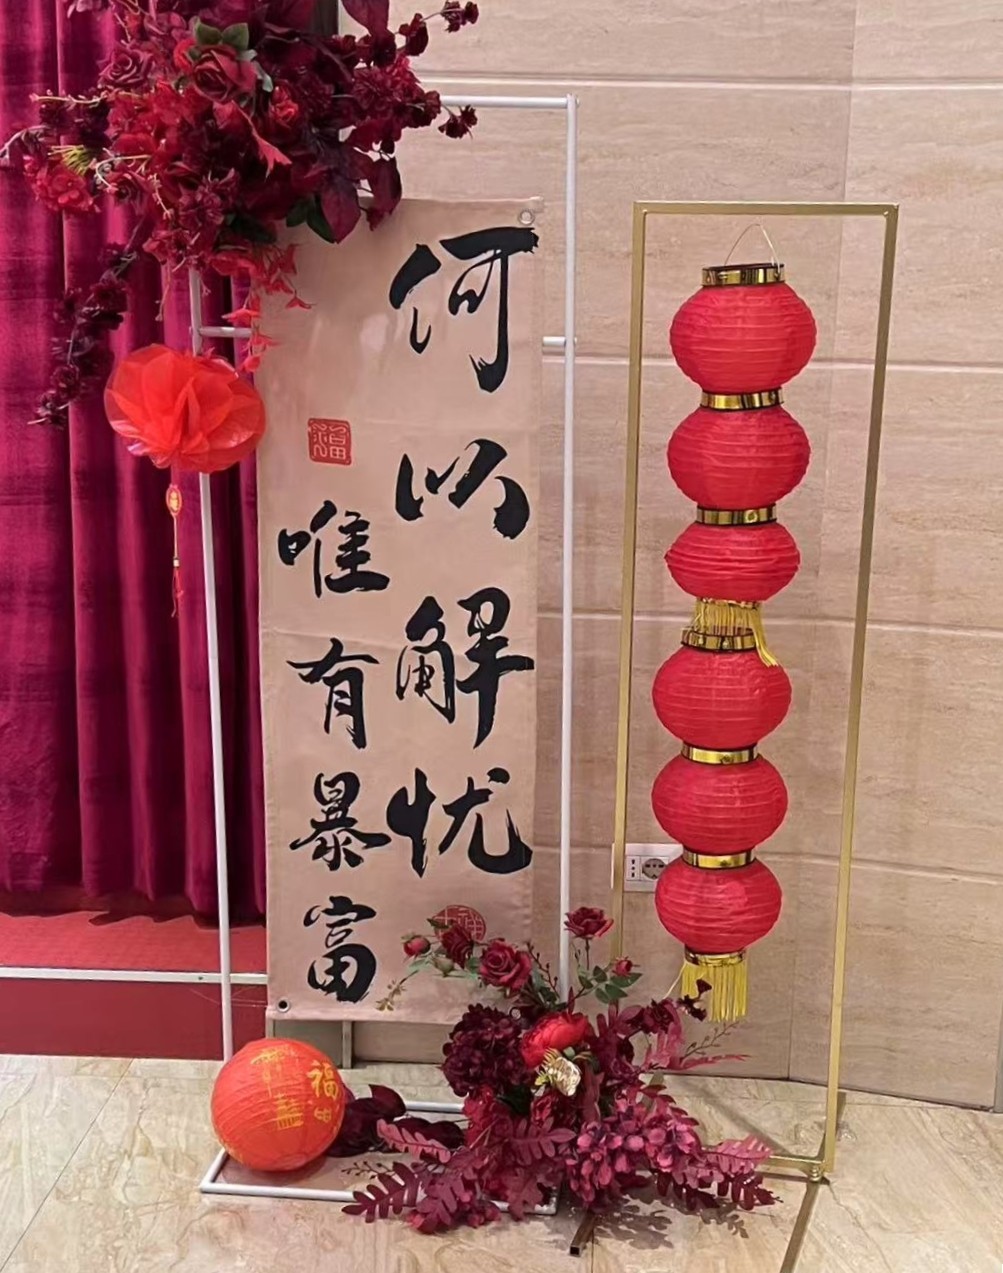 何以解忧
唯有暴富
福
福